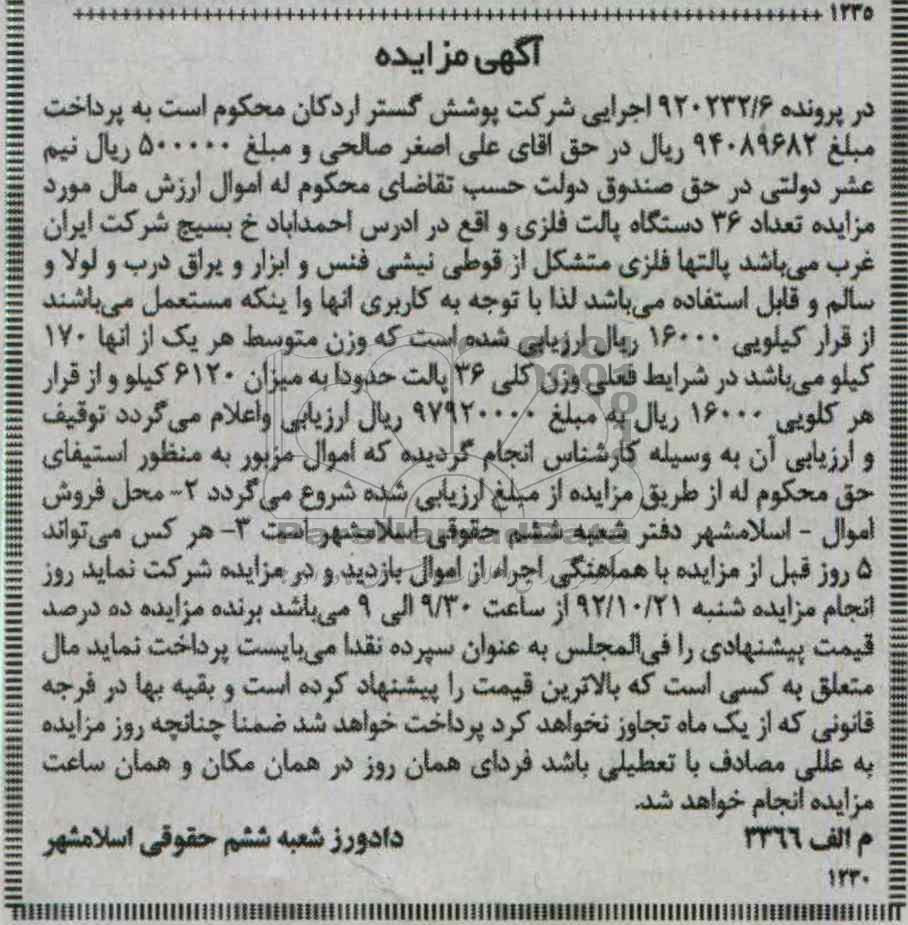 ۱۲۳۵
آگهی مزایده
در پرونده ۹۲۰۲۳۲/۶ اجرایی شرکت پوشش گستر اردکان محکوم است به پرداخت
مبلغ ۹۴۰۸۹۶۸۲ ریال در حق اقای علی اصغر صالحی و مبلغ ۵۰۰۰۰۰ ریال نیم
عشر دولتی در حق صندوق دولت حسب تقاضای محکوم له اموال ارزش مال مورد
مزایده تعداد ۳۶ دستگاه پالت فلزی و اقع در ادرس احمداباد خ بسیج شرکت ایران
غرب می‌باشد پالتها فلزی متشکل از قوطی نبشی فنس و ابزار و یراق درب و لولا و
سالم و قابل استفاده می‌باشد لذا با توجه به کاربری انها وا ینکه مستعمل می‌باشند
از قرار کیلویی ۱۶۰۰۰ ریال ارزیابی شده است که وزن متوسط هر یک از انها ۱۷۰
کیلو می‌باشد در شرایط فعلی وزن کلی ۳۶ پالت حدودا به میزان ۶۱۲۰ کیلو و از قرار
هر کلویی ۱۶۰۰۰ ریال به مبلغ ۹۷۹۲۰۰۰۰ ریال ارزیابی واعلام می‌گردد توقیف
و ارزیابی آن به وسیله کارشناس انجام گردیده که اموال مزبور به منظور استیفای
حق محکوم له از طریق مزایده از مبلغ ارزیابی شده شروع می‌گردد ۲- محل فروش
اموال - اسلامشهر دفتر شعبه ششم حقوقی اسلامشهر است ۳- هر کس می‌تواند
۵ روز قبل از مزایده با هماهنگی اجراء از اموال بازدید و در مزایده شرکت نماید روز
انجام مزایده شنبه ۹۲/۱۰/۲۱ از ساعت ۹/۳۰ الی ۹ می‌باشد برنده مزایده ده درصد
قیمت پیشنهادی را فی‌المجلس به عنوان سپرده نقدا می‌بایست پرداخت نماید مال
متعلق به کسی است که بالاترین قیمت را پیشنهاد کرده است و بقیه بها در فرجه
قانونی که از یک ماه تجاوز نخواهد کرد پرداخت خواهد شد ضمنا چنانچه روز مزایده
به عللی مصادف با تعطیلی باشد فردای همان روز در همان مکان و همان ساعت
مزایده انجام خواهد شد.
م الف ۳۳۶۶ دادورز شعبه ششم حقوقی اسلامشهر
۱۲۳۰